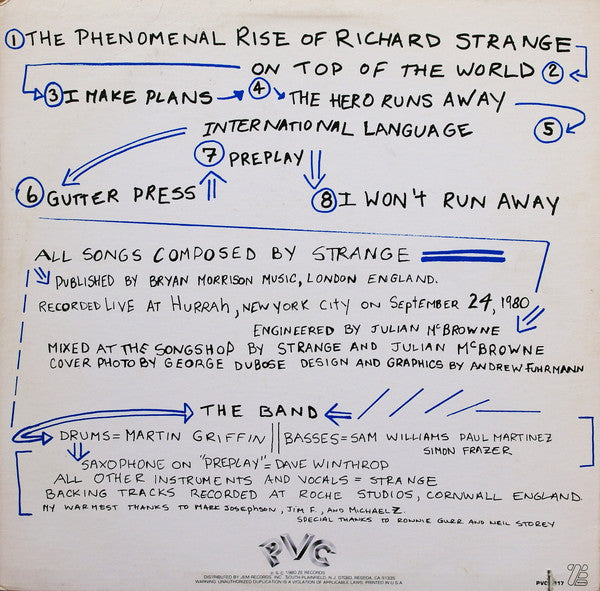 1 THE PHENOMENAL RISE OF RICHARD STRANGE
ON TOP OF THE WORLD 2
3 I MAKE PLANS 4 THE HERO RUNS AWAY
INTERNATIONAL LANGUAGE 5
7 PREPLAY
6 GUTTER PRESS
8 I WON'T RUN AWAY
ALL SONGS COMPOSED BY STRANGE
PUBLISHED BY BRYAN MORRISON MUSIC, LONDON ENGLAND.
RECORDED LIVE AT HURRAH, NEW YORK CITY ON SEPTEMBER 24, 1980
ENGINEERED BY JULIAN McBROWNE
MIXED AT THE SONGSHOP BY STRANGE AND JULIAN McBROWNE
COVER PHOTO BY GEORGE DUBOSE DESIGN AND GRAPHICS BY ANDREW FUHRMANN
THE BAND
DRUMS = MARTIN GRIFFIN || BASSES = SAM WILLIAMS PAUL MARTINEZ
SIMON FRAZER
SAXOPHONE ON "PREPLAY" = DAVE WINTHROP
ALL OTHER INSTRUMENTS AND VOCALS = STRANGE
BACKING TRACKS RECORDED AT ROCHE STUDIOS, CORNWALL ENGLAND.
MY WARMEST THANKS TO MARK JOSEPHSON, JIM F., AND MICHAEL Z.
SPECIAL THANKS TO RONNIE GURR AND NEIL STOREY
PVC
℗ & © 1980 ZE RECORDS
DISTRIBUTED BY JEM RECORDS, INC. SOUTH PLAINFIELD, N.J. 07080, RESEDA, CA 91335
WARNING: UNAUTHORIZED DUPLICATION IS A VIOLATION OF APPLICABLE LAWS. PRINTED IN U.S.A.
PVC ZE